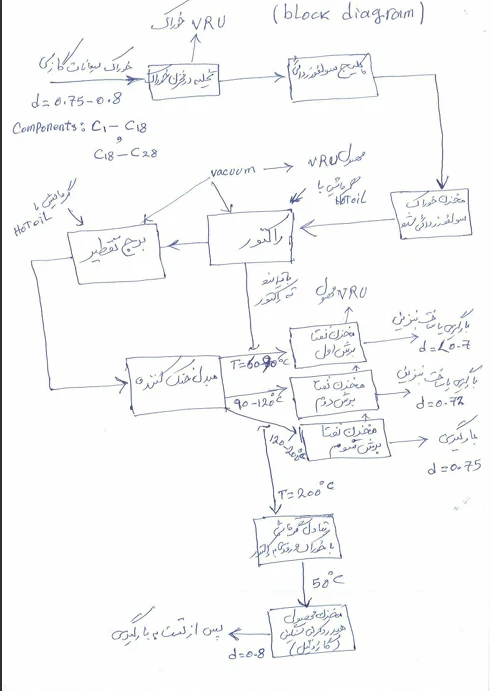 (block diagram)
خوراک VRU
خوراک میعانات گازی
تخلیه در مخزن خوراک
پکیج سولفورزدائی
d = 0.75-0.8
Components: C1 - C18
و
C18 - C28
vacuum → محصول VRU
گرمایش با
HOT OIL
گرمایش با
HOT OIL
مخزن خوراک
سولفورزدائی شده
راکتور
برج تقطیر
باقیمانده
ته راکتور
محصول VRU
مبدل خنک کننده
T=60-90°C
90-120°C
120-200°C
مخزن نفتا
برش اول
مخزن نفتا
برش دوم
مخزن نفتا
برش سوم
بارگیری یا ساخت بنزین
d = <0.7
بارگیری یا ساخت بنزین
d = 0.72
بارگیری
d = 0.75
T = 200°C
تبادل گرمائی
با خوراک ورودی راکتور
50°C
مخزن محصول
هیدروکربن سنگین
(گازوئیل)
پس از تست به بارگیری
d = 0.8